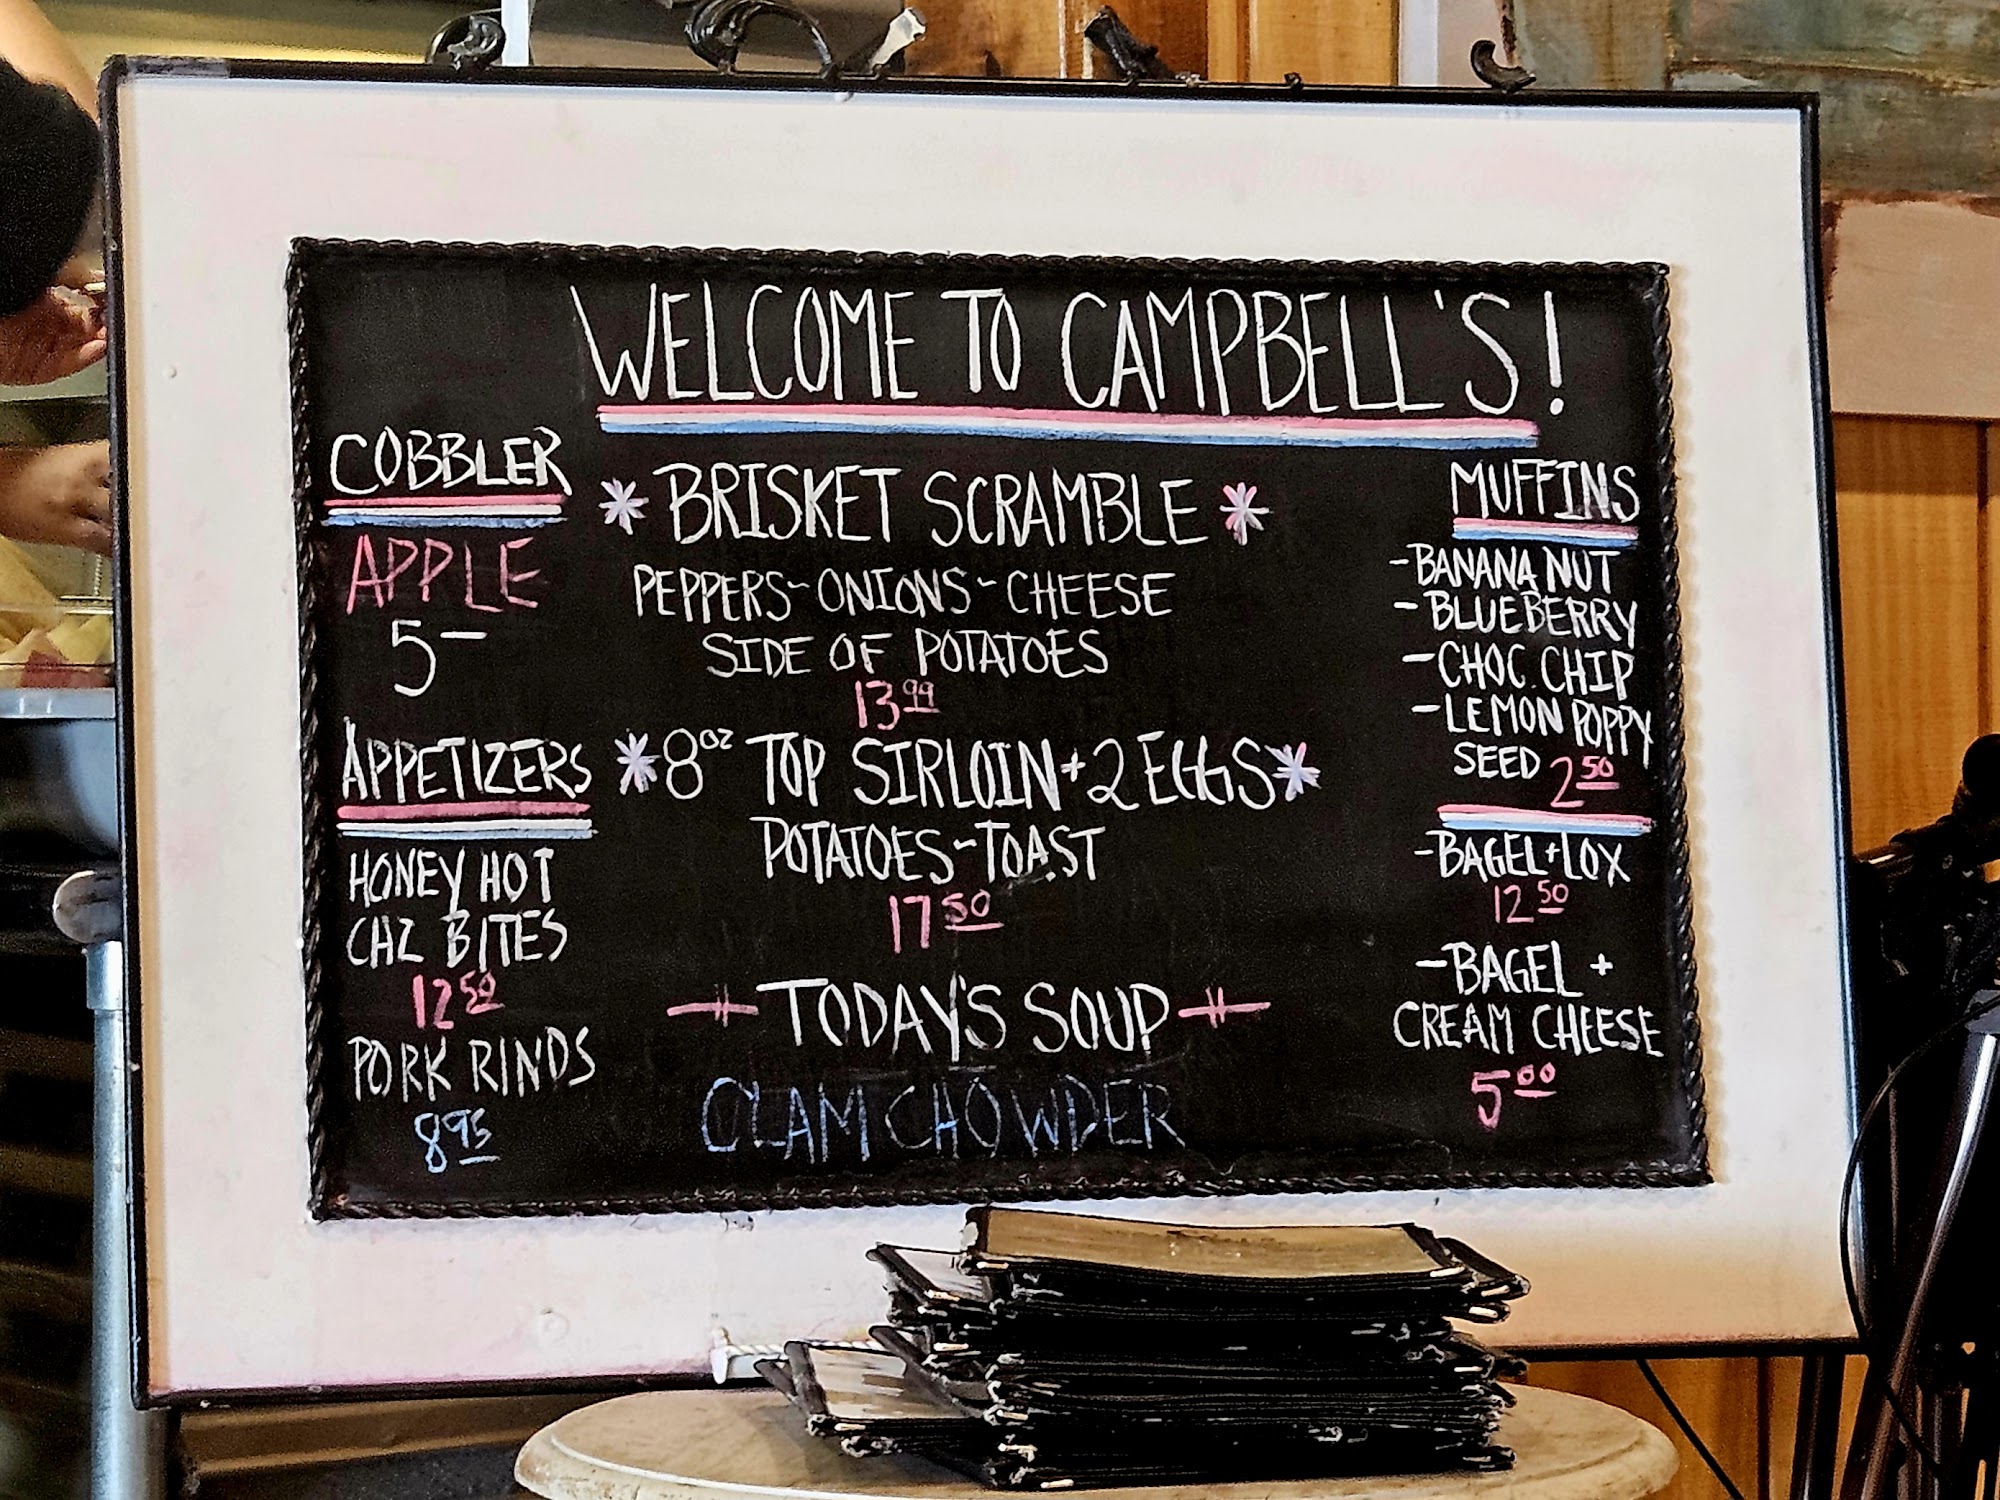 WELCOME TO CAMPBELL'S!
COBBLER
APPLE
5—
APPETIZERS
HONEY HOT
CHZ BITES
12 50
PORK RINDS
8 95
* BRISKET SCRAMBLE *
PEPPERS~ONIONS~CHEESE
SIDE OF POTATOES
13 99
*8 OZ TOP SIRLOIN+2 EGGS*
POTATOES~TOAST
17 50
TODAY'S SOUP
CLAM CHOWDER
MUFFINS
-BANANA NUT
-BLUEBERRY
-CHOC. CHIP
-LEMON POPPY
SEED 2 50
-BAGEL+LOX
12 50
-BAGEL +
CREAM CHEESE
5 00